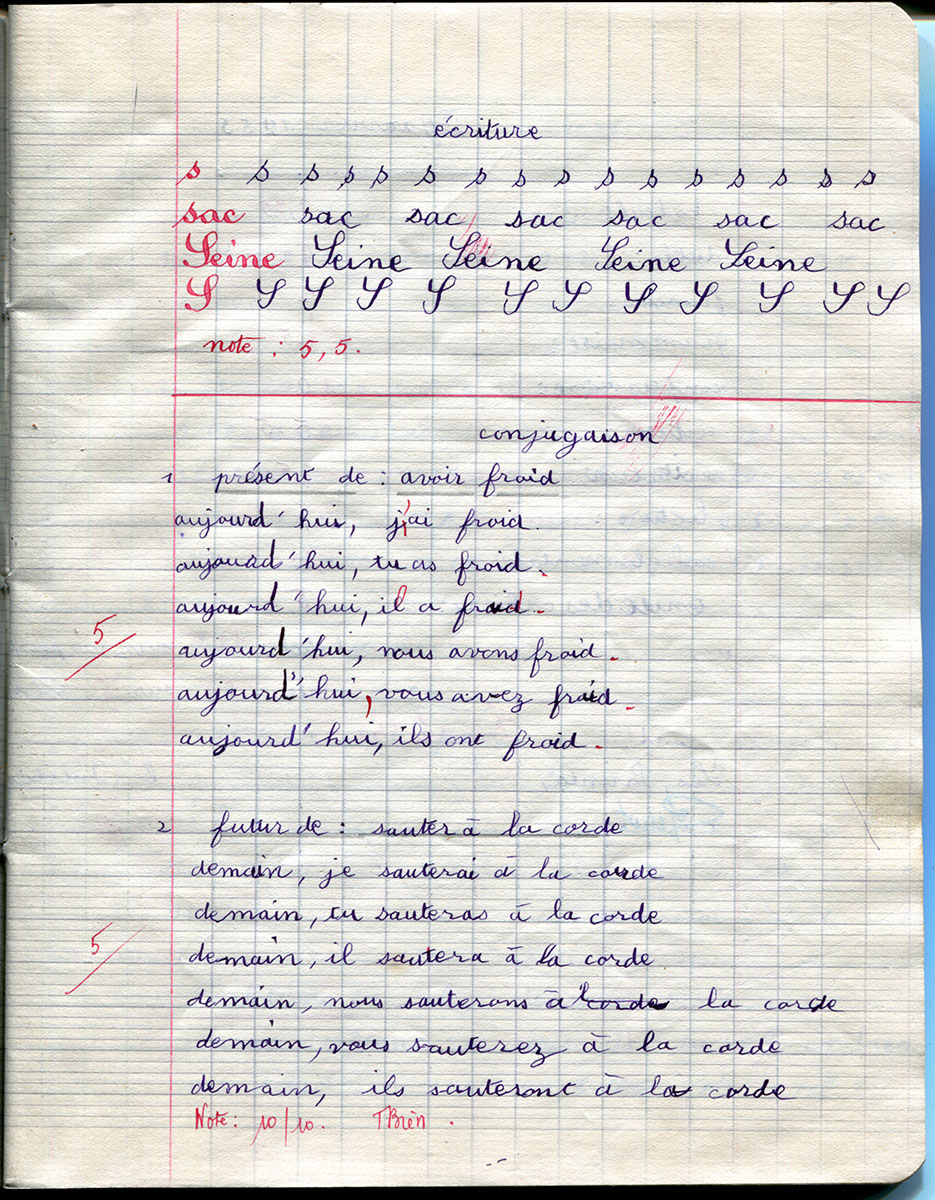 écriture
s s s s s s s s s s s s s s s s
sac sac sac sac sac sac sac.
Seine Seine Seine Seine Seine
S S S S S S S S S S S S
note : 5,5.
conjugaison
1 présent de : avoir froid
aujourd'hui, j'ai froid.
aujourd'hui, tu as froid.
aujourd'hui, il a froid.
5
aujourd'hui, nous avons froid.
aujourd'hui, vous avez froid.
aujourd'hui, ils ont froid.
2 futur de : sauter à la corde
demain, je sauterai à la corde
demain, tu sauteras à la corde
5
demain, il sautera à la corde
demain, nous sauterons à l'corde la corde
demain, vous sauterez à la corde
demain, ils sauteront à la corde
Note: 10/10. TBien.